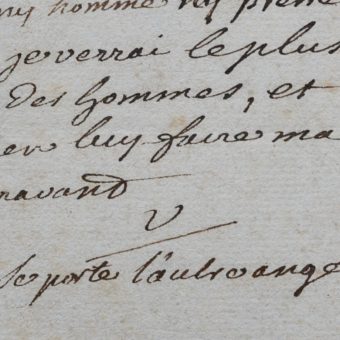 homme ny pierre
je verrai le plus
Des hommes, et
luy faire ma
ravand
V
se porte l'autre ange